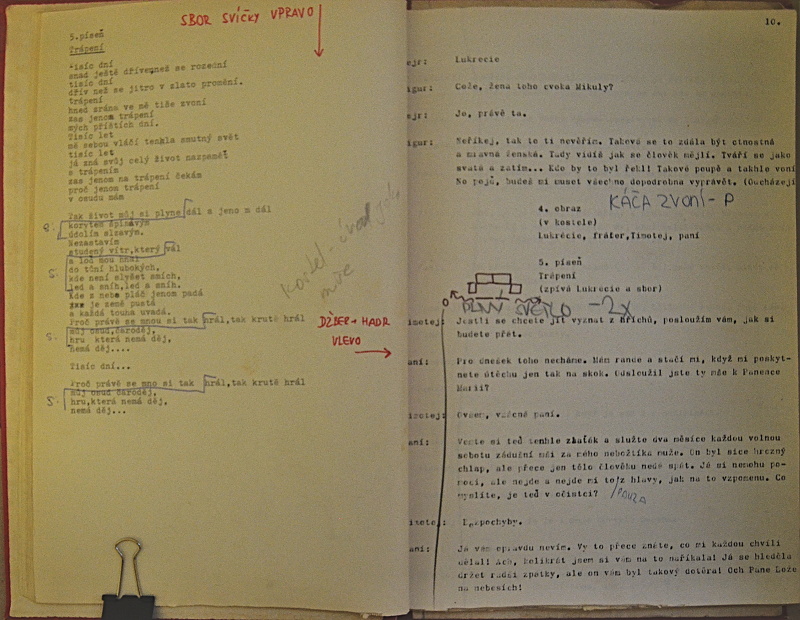 SBOR SVÍČKY VPRAVO
5.píseň
Trápení
Tisíc dní
snad ještě dříve,než se rozední
tisíc dní
dřív než se jitro v zlato promění.
trápení
hned zrána ve mě tiše zvoní
zas jenom trápení
mých příštích dní.
Tisíc let
mě sebou vláčí tenhle smutný svět
tisíc let
já zná svůj celý život nazpamět
s trápením
zas jenom na trápení čekám
proč jenom trápení
v osudu mám
Pak život můj si plyne dál a jeno m dál
S:
korytem špinavým
údolím slzavým.
Nenastavím
studený vítr,který vál
S:
a loď mou hnal
do tůní hlubokých,
kde není slyšet smích,
led a sníh,led a sníh.
Kde z nebe pláč jenom padá
kde je země pustá
a každá touha uvadá.
Proč právě se mnou si tak hrál,tak krutě hrál
S:
můj osud čaroděj,
hru která nemá děj,
nemá děj....
Tisíc dní...
Proč právě se mno si tak hrál,tak krutě hrál
S:
můj osud čaroděj,
hru,která nemá děj,
nemá děj...
Kostel - úvod
DŽBER + HADR
VLEVO
10.
ejr: Lukrecie
igur: Cože, žena toho cvoka Mikuly?
ejr: Jo, právě ta.
igur: Neříkej, tak to ti nevěřím. Taková se to zdála být ctnostná
a mravná ženská. Tady vidíš jak se člověk mejlí. Tváří se jako
svatá a zatím... Kdo by to byl řekl! Takové poupě a takhle voní
No pojď, budeš mi muset všechno dopodrobna vyprávět. (Odcházejí
4. obraz
KÁČA ZVONÍ - P
(v kostele)
Lukrécie, fráter,Timotej, paní
5. píseň
Trápení
(zpívá Lukrecie a sbor)
PLNÝ SVĚTLO - 2x
imotej: Jestli se chcete jít vyznat z hříchů, poslouším vám, jak si
budete přát.
aní: Pro dnešek toho necháme. Mám rande a stačí mi, když mi poskyt-
nete útěchu jen tak na skok. Odsloužil jste ty mše k Panence
Marii?
imotej: Ovšem, vzácná paní.
aní: Vemte si teď tenhle zlaťák a služte dva měsíce každou volnou
sobotu zádušní mši za mého nebožtíka muže. On byl sice hrozný
chlap, ale přece jen tělo člověku nedá spát. Já si nemohu po-
moci, ale nejde a nejde mi to z hlavy, jak na to vzpomenu. Co
myslíte, je teď v očistci? /PAUZA
imotej: Bezpochyby.
aní: Já vám opravdu nevím. Vy to přece znáte, co mi každou chvíli
dělal! Ach, kolikrát jsem si vám na to naříkala! Já se hleděla
držet radši zpátky, ale on vám byl takový dotěra! Och Pane Bože
na nebesích!